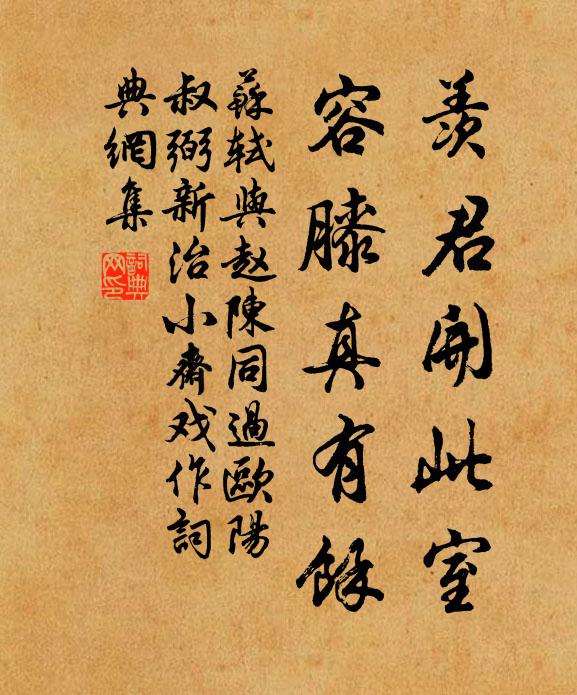 羨君開此室
容膝真有餘
蘇軾與趙陳同過歐陽
叔弼新治小齋戏作詞
典網集
詞典网印